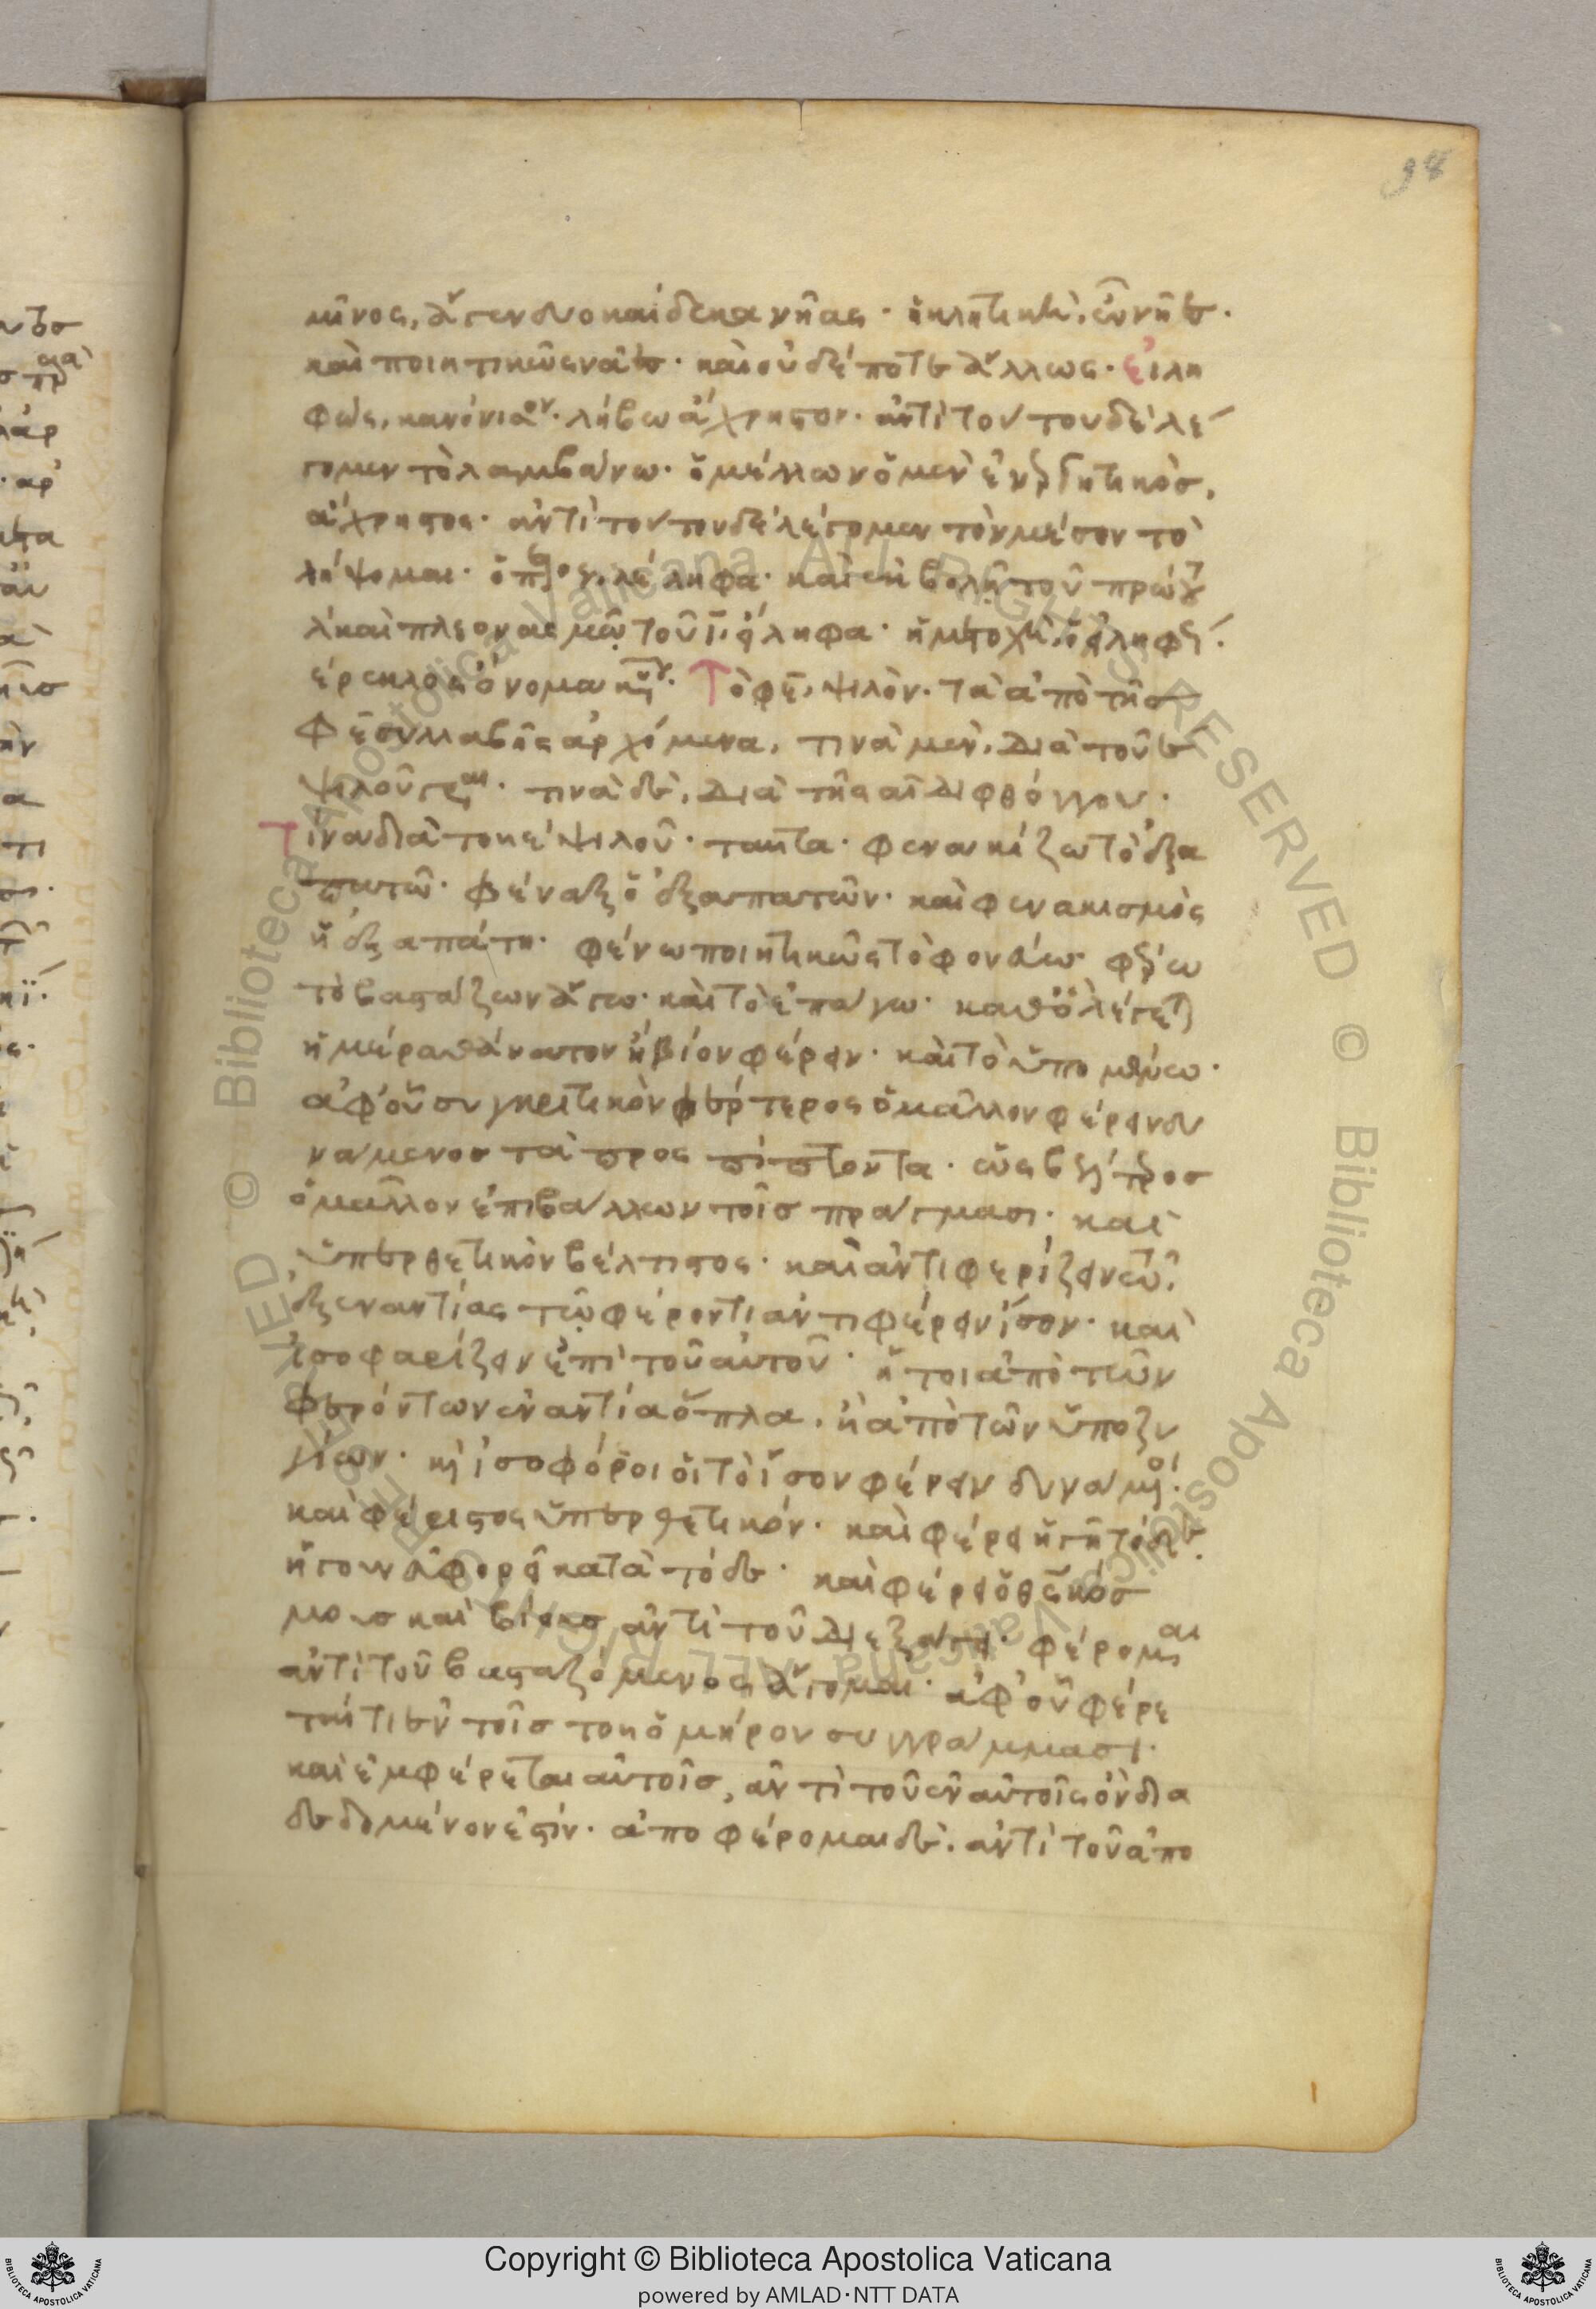 98
μῖνος, ἄγεν δυοκαίδεκα νῆας· ἡ κλητικὴ, ὦ νῆε·
καὶ ποιητικῶς νᾶε· καὶ οὐδέποτε ἄλλως· εἰλη
φὼς, κανόνισον· λήβω ἄχρηστον· ἀντὶ τούτου δὲ λέ
γομεν τὸ λαμβάνω· ὁ μέλλων ὁ μὲν ἐνεργητικὸς,
ἄχρηστος· ἀντὶ τούτου δὲ λέγομεν τὸν μέσον τὸ
λήψομαι· ὁ λέληφα· καὶ ἐκβολῇ τοῦ πρώτου
λ καὶ πλεονασμῷ τοῦ ϊ, εἴληφα· ἡ μετοχὴ, ὁ εἰληφώς·
ὄνομα Τὸ φε, ψιλόν· τὰ ἀπὸ τῆς
φε συλλαβῆς ἀρχόμενα, τινὰ μὲν, διὰ τοῦ ε
ψιλοῦ γράφεται· τινὰ δὲ, διὰ τῆς αι διφθόγγου·
Τίνα διὰ τοῦ ε ψιλοῦ· ταῦτα· φενακίζω τὸ ἐξα
πατῶ· φέναξ ὁ ἐξαπατῶν· καὶ φενακισμὸς
ἡ ἐξαπάτη· φένω ποιητικῶς τὸ φονεύω· φέρω
τὸ βαστάζων ἄγω· καὶ τὸ ἐπάγω· καθὸ λέγεται
ἡμέρα θάνατον ἢ βίον φέρειν· καὶ τὸ ὑπομένω·
ἀφ' οὗ συγκριτικὸν φέρτερος ὁ μᾶλλον φέρειν δυ
νάμενος τὰ προσπίπτοντα· ὡς βέλτερος
ὁ μᾶλλον ἐπιβάλλων τοῖς πράγμασι· καὶ
ὑπερθετικὸν βέλτιστος· καὶ ἀντιφερίζειν
ἐξεναντίας τῷ φέροντι ἀντιφέρειν ἴσον· καὶ
ἰσοφαρίζειν ἐπὶ τοῦ αὐτοῦ· ἤτοι ἀπὸ τῶν
φερόντων ἐναντία ὅπλα, ἢ ἀπὸ τῶν ὑποζυ
γίων· καὶ ἰσοφόροι οἱ τὸ ἴσον φέρειν δυνάμενοι·
καὶ φέριστος ὑπερθετικόν· καὶ φέρει ἡ γῆ τόδε
ἤγουν ἀφορᾷ κατὰ τόδε· καὶ φέρει ὁ θεῖκός
μους καὶ βίους ἀντὶ τοῦ διεξάγει· φέρομαι
ἀντὶ τοῦ βασταζόμενος ἄγομαι· ἀφ' οὗ φέρε
ταί τι ἐν τοῖς τοῦ ὁμήρου συγγράμμασι·
καὶ ἐμφέρεται αὐτοῖς, ἀντὶ τοῦ ἐν αὐτοῖς ὂν δια
δεδομένον ἐστίν· ἀποφέρομαι δὲ, ἀντὶ τοῦ ἀπο
Copyright © Biblioteca Apostolica Vaticana
powered by AMLAD·NTT DATA